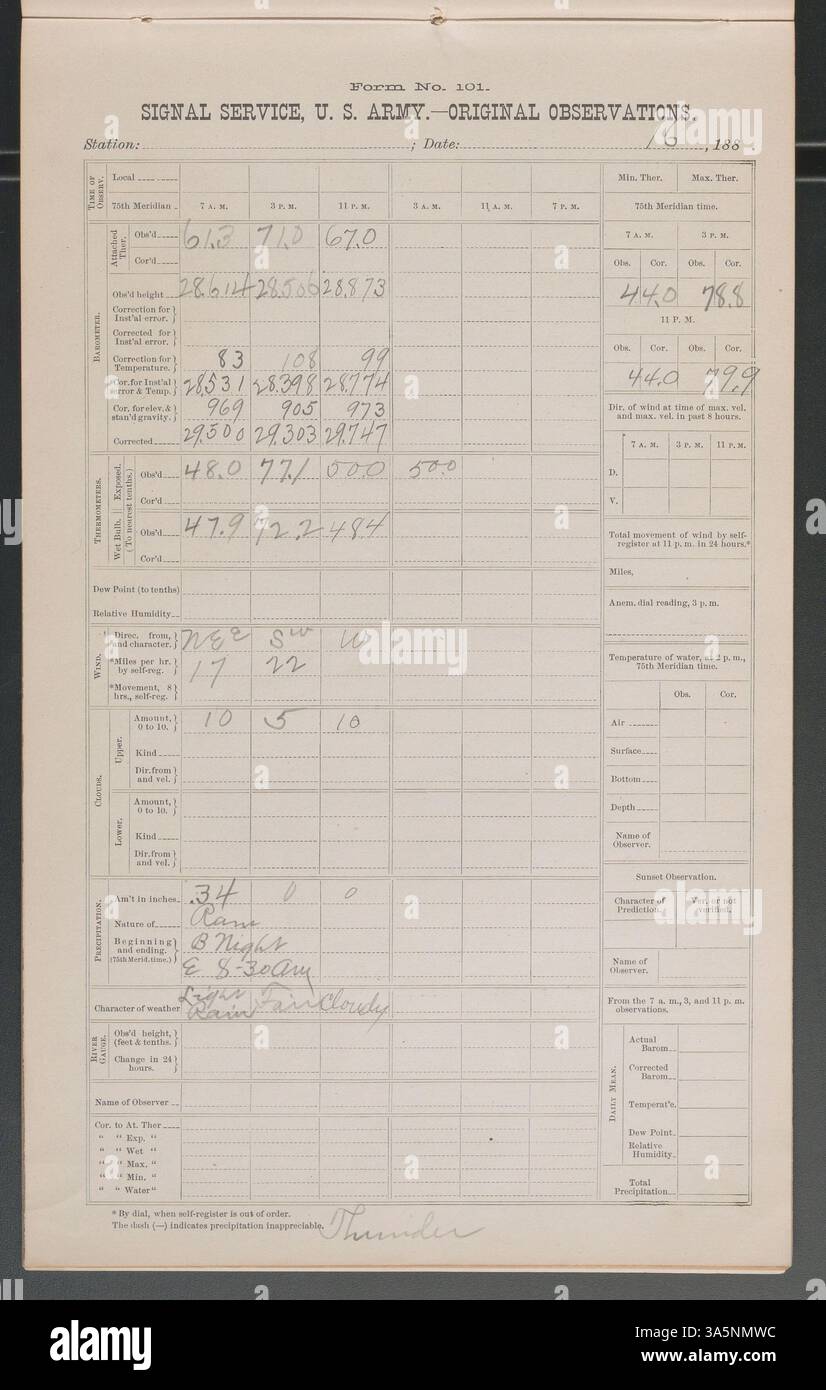 Form No. 101.
SIGNAL SERVICE, U. S. ARMY.—ORIGINAL OBSERVATIONS.
Station: ; Date: 18 , 188
TIME OF OBSERV. Local
75th Meridian 7 A. M. 3 P. M. 11 P. M. 3 A. M. 11 A. M. 7 P. M.
BAROMETER.
Attached Ther.
Obs'd 61.3 71.0 67.0
Cor'd
Obs'd height 28.614 28.506 28.873
Correction for Inst'al error.
Corrected for Inst'al error.
Correction for Temperature. 83 108 99
Cor. for Inst'al error & Temp. 28.531 28.398 28.774
Cor. for elev. & stan'd gravity. 969 905 973
Corrected 29.500 29.303 29.747
THERMOMETERS.
Exposed.
(To nearest tenths.)
Obs'd 48.0 77.1 50.0 50.0
Cor'd
Wet Bulb.
Obs'd 47.9 72.2 48.4
Cor'd
Dew Point (to tenths)
Relative Humidity
WIND.
Direc. from, and character. SW W
*Miles per hr. by self-reg. 17 22
*Movement, 8 hrs., self-reg.
CLOUDS.
Upper.
Amount, 0 to 10. 10 5 10
Kind
Dir. from and vel.
Lower.
Amount, 0 to 10.
Kind
Dir. from and vel.
PRECIPITATION.
Am't in inches. .34 0 0
Nature of Rain
Beginning and ending. (75th Merid. time.) B Night
E 8-30 am
Character of weather Light Rain Fair Cloudy
RIVER GAUGE.
Obs'd height, (feet & tenths.
Change in 24 hours.
Name of Observer
Cor. to At. Ther
" " Exp. "
" " Wet "
" " Max. "
" " Min. "
" " Water "
* By dial, when self-register is out of order.
The dash (—) indicates precipitation inappreciable.
Thunder
Min. Ther. Max. Ther.
75th Meridian time.
7 A. M. 3 P. M.
Obs. Cor. Obs. Cor.
44.0 78.8
11 P. M.
Obs. Cor. Obs. Cor.
44.0 79.9
Dir. of wind at time of max. vel. and max. vel. in past 8 hours.
7 A. M. 3 P. M. 11 P. M.
D.
V.
Total movement of wind by self-register at 11 p. m. in 24 hours.*
Miles,
Anem. dial reading, 3 p. m.
Temperature of water, at 2 p. m., 75th Meridian time.
Obs. Cor.
Air
Surface
Bottom
Depth
Name of Observer.
Sunset Observation.
Character of Prediction. Ver. or not verified.
Name of Observer.
From the 7 a. m., 3, and 11 p. m. observations.
DAILY MEAN.
Actual Barom.
Corrected Barom.
Temperat'e.
Dew Point.
Relative Humidity.
Total Precipitation.
alamy
alamy
Image ID: 3A5NMWC
www.alamy.com